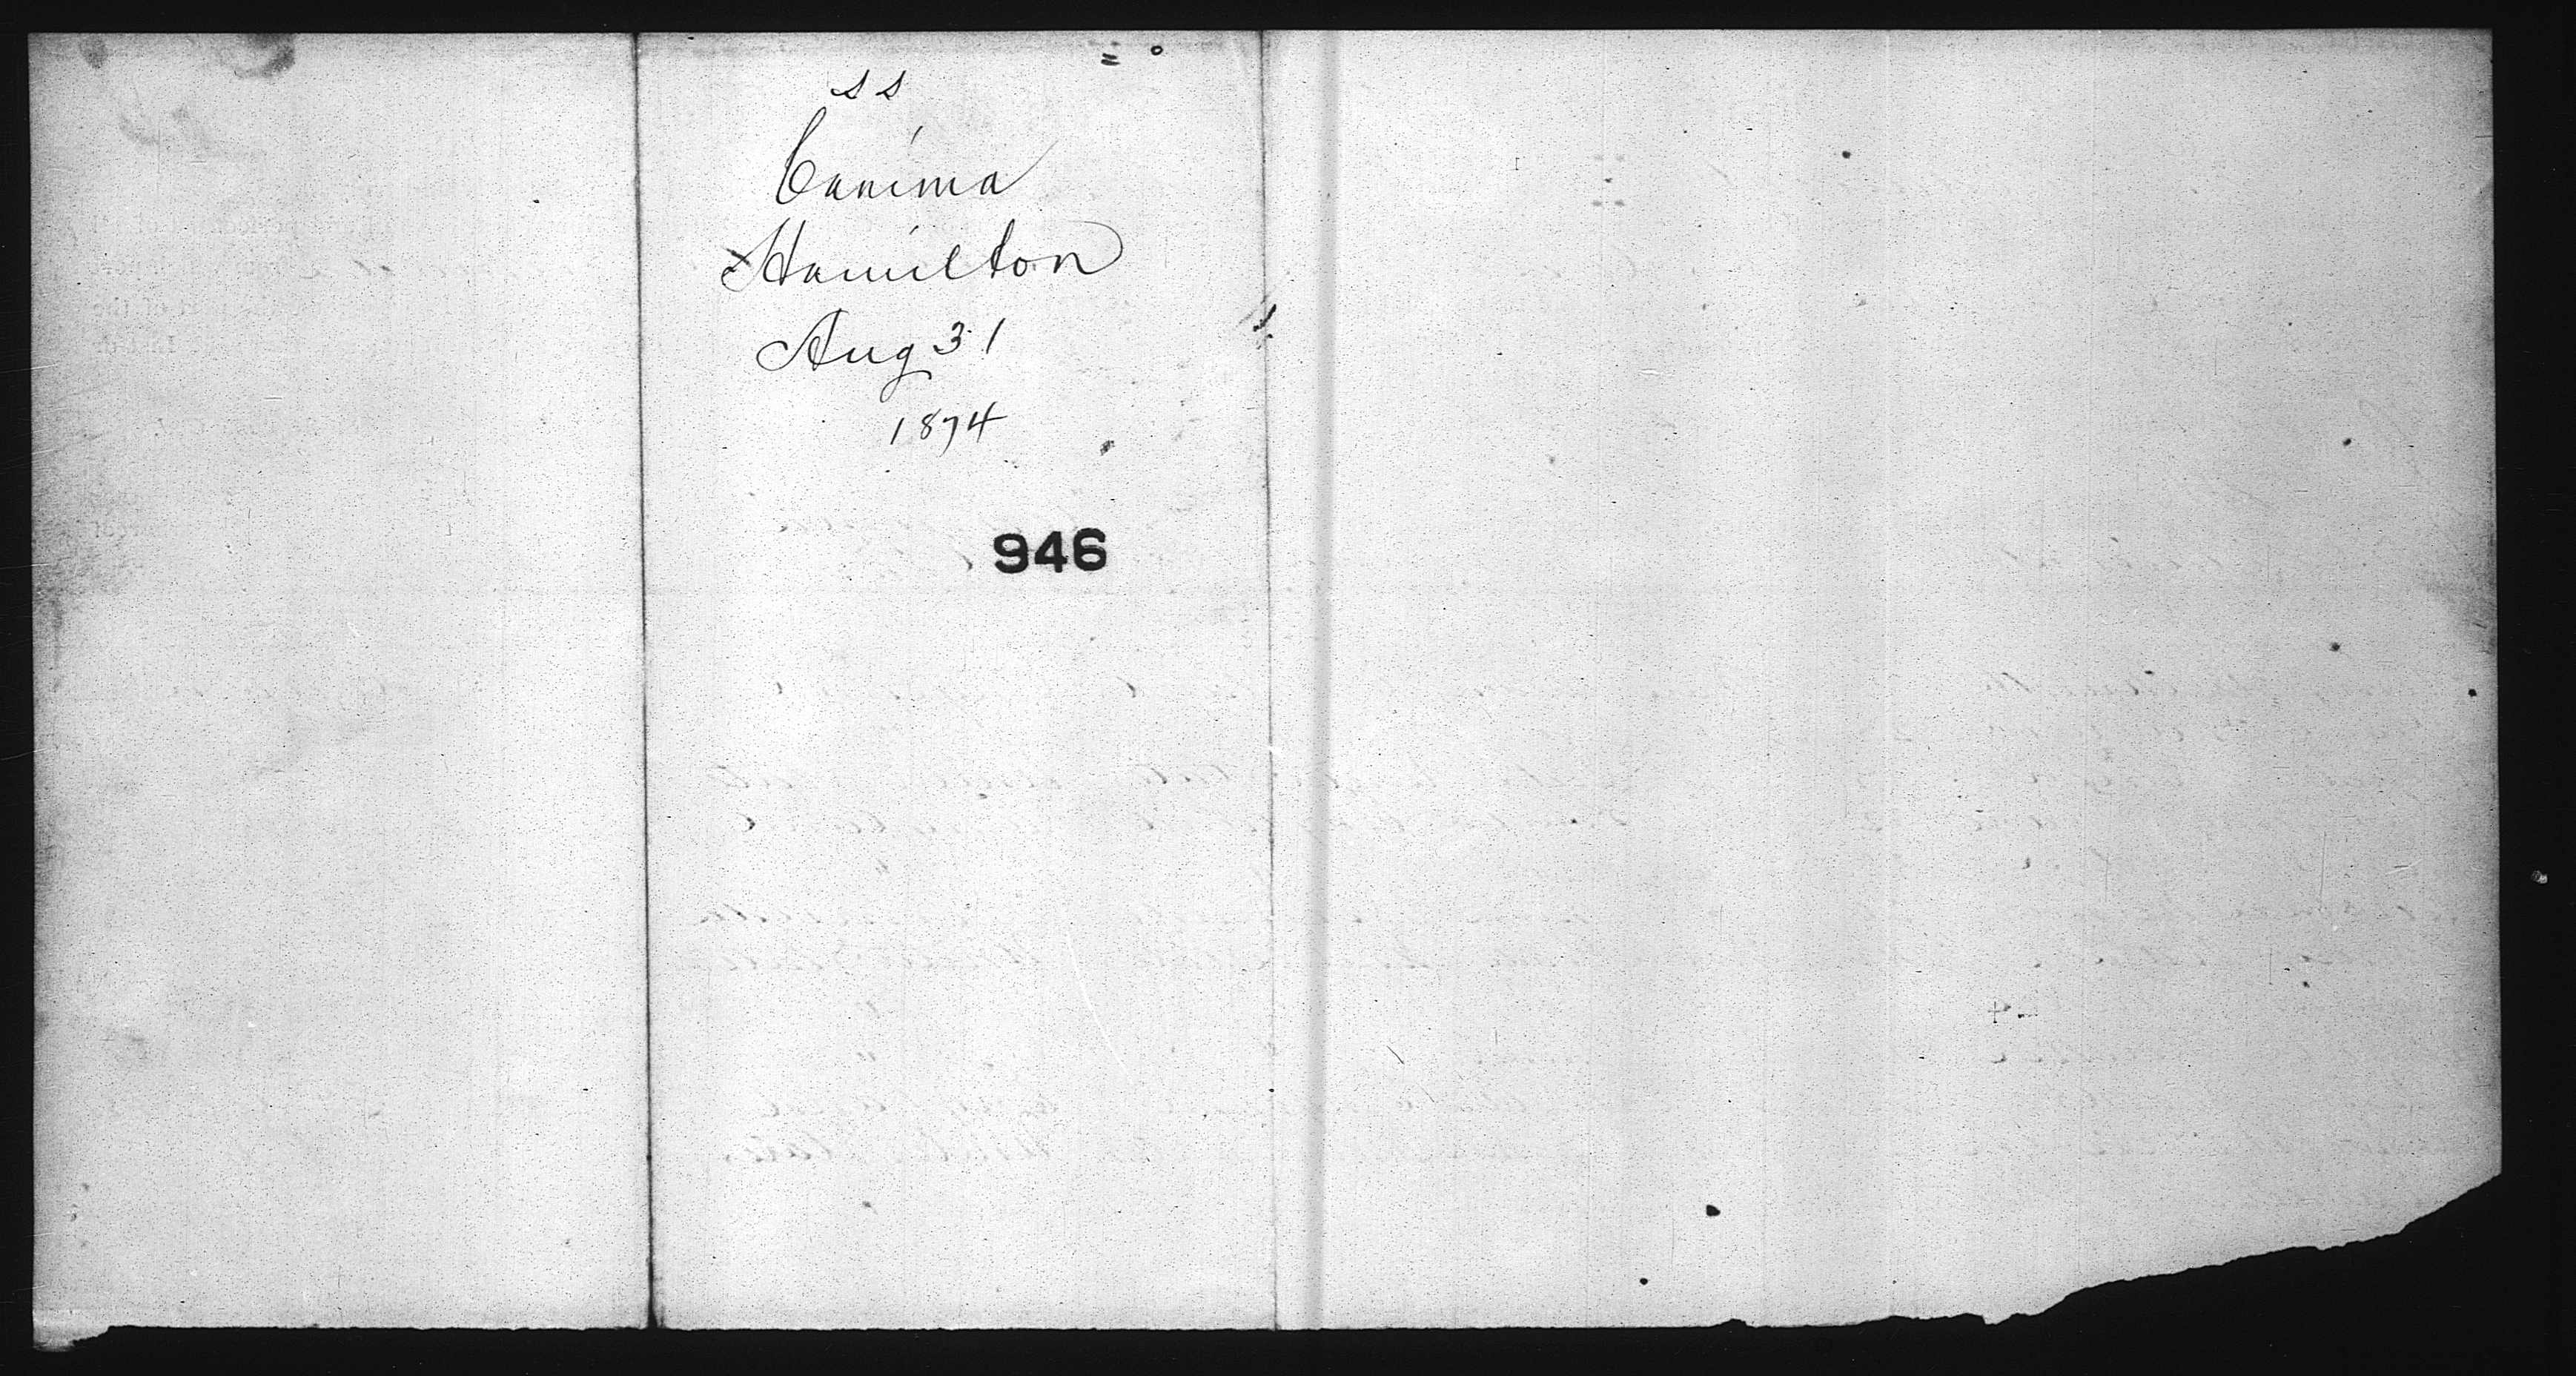 SS
Canima
Hamilton
Aug 31
1874
946